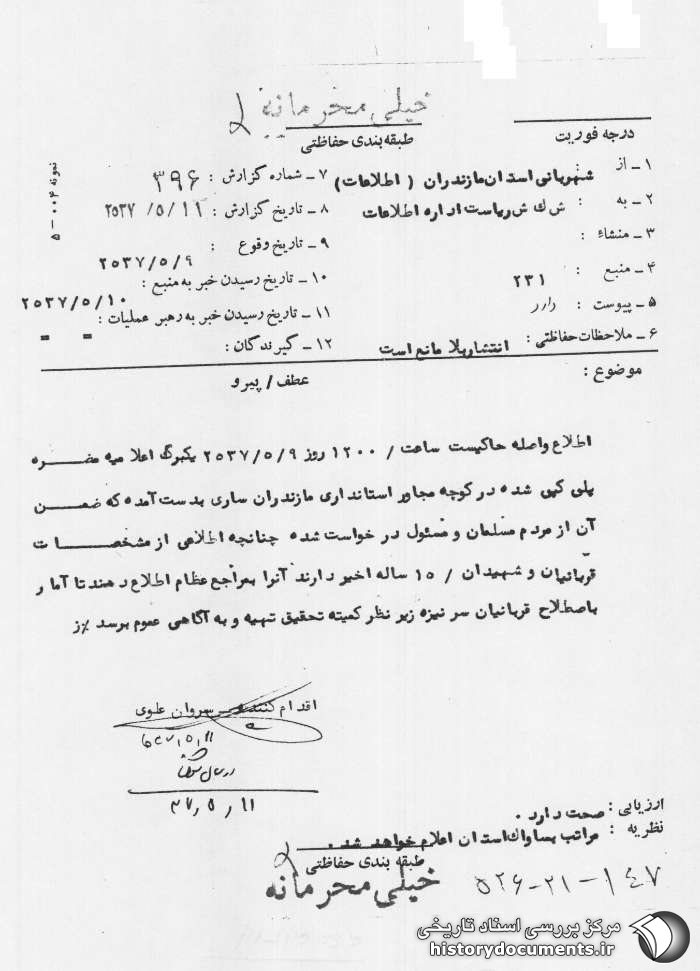 خیلی محرمانه
طبقه‌بندی حفاظتی
درجه فوریت
نمونه ۰۰۴ – ۵
۱ – از : شهربانی استان مازندران ( اطلاعات )
۲ – به : ش ك ش ریاست اداره اطلاعات
۳ – منشاء :
۴ – منبع : ۲۳۱
۵ – پیوست : دارد
۶ – ملاحظات حفاظتی : انتشار بلا مانع است
۷ – شماره گزارش : ۳۹۶
۸ – تاریخ گزارش : ۲۵۳۷/۵/۱۱
۹ – تاریخ وقوع : ۲۵۳۷/۵/۹
۱۰ – تاریخ رسیدن خبر به منبع :
۲۵۳۷/۵/۱۰
۱۱ – تاریخ رسیدن خبر به رهبر عملیات :
۱۲ – گیرندگان : = =
موضوع :
عطف / پیرو
اطلاع واصله حاکیست ساعت / ۱۲۰۰ روز ۲۵۳۷/۵/۹ یکبرگ اعلا میه مضـــره
پلی کپی شده در کوچه مجاور استانداری مازندران ساری بدست آمده که ضمـــن
آن از مردم مسلمان و مسئول در خواست شده چنانچه اطلاعی از مشخصــــات
قربانیان و شهیدان / ۱۵ ساله اخیر دارند آنرا بمراجع عظام اطلاع دهند تا آما ر
باصطلاح قربانیان سر نیزه زیر نظر کمیته تحقیق تهیه و به آگاهی عموم برسد ٪ز
اقدام کننده سروان علوی
۳۷/۵/۱۱
ارزیابی : صحت دارد .
نظریه : مراتب بساواك استان اعلام خواهد شد .
طبقه بندی حفاظتی
خیلی محرمانه
۵۲۶-۲۱-۱۴۷
مرکز بررسی اسناد تاریخی
historydocuments.ir